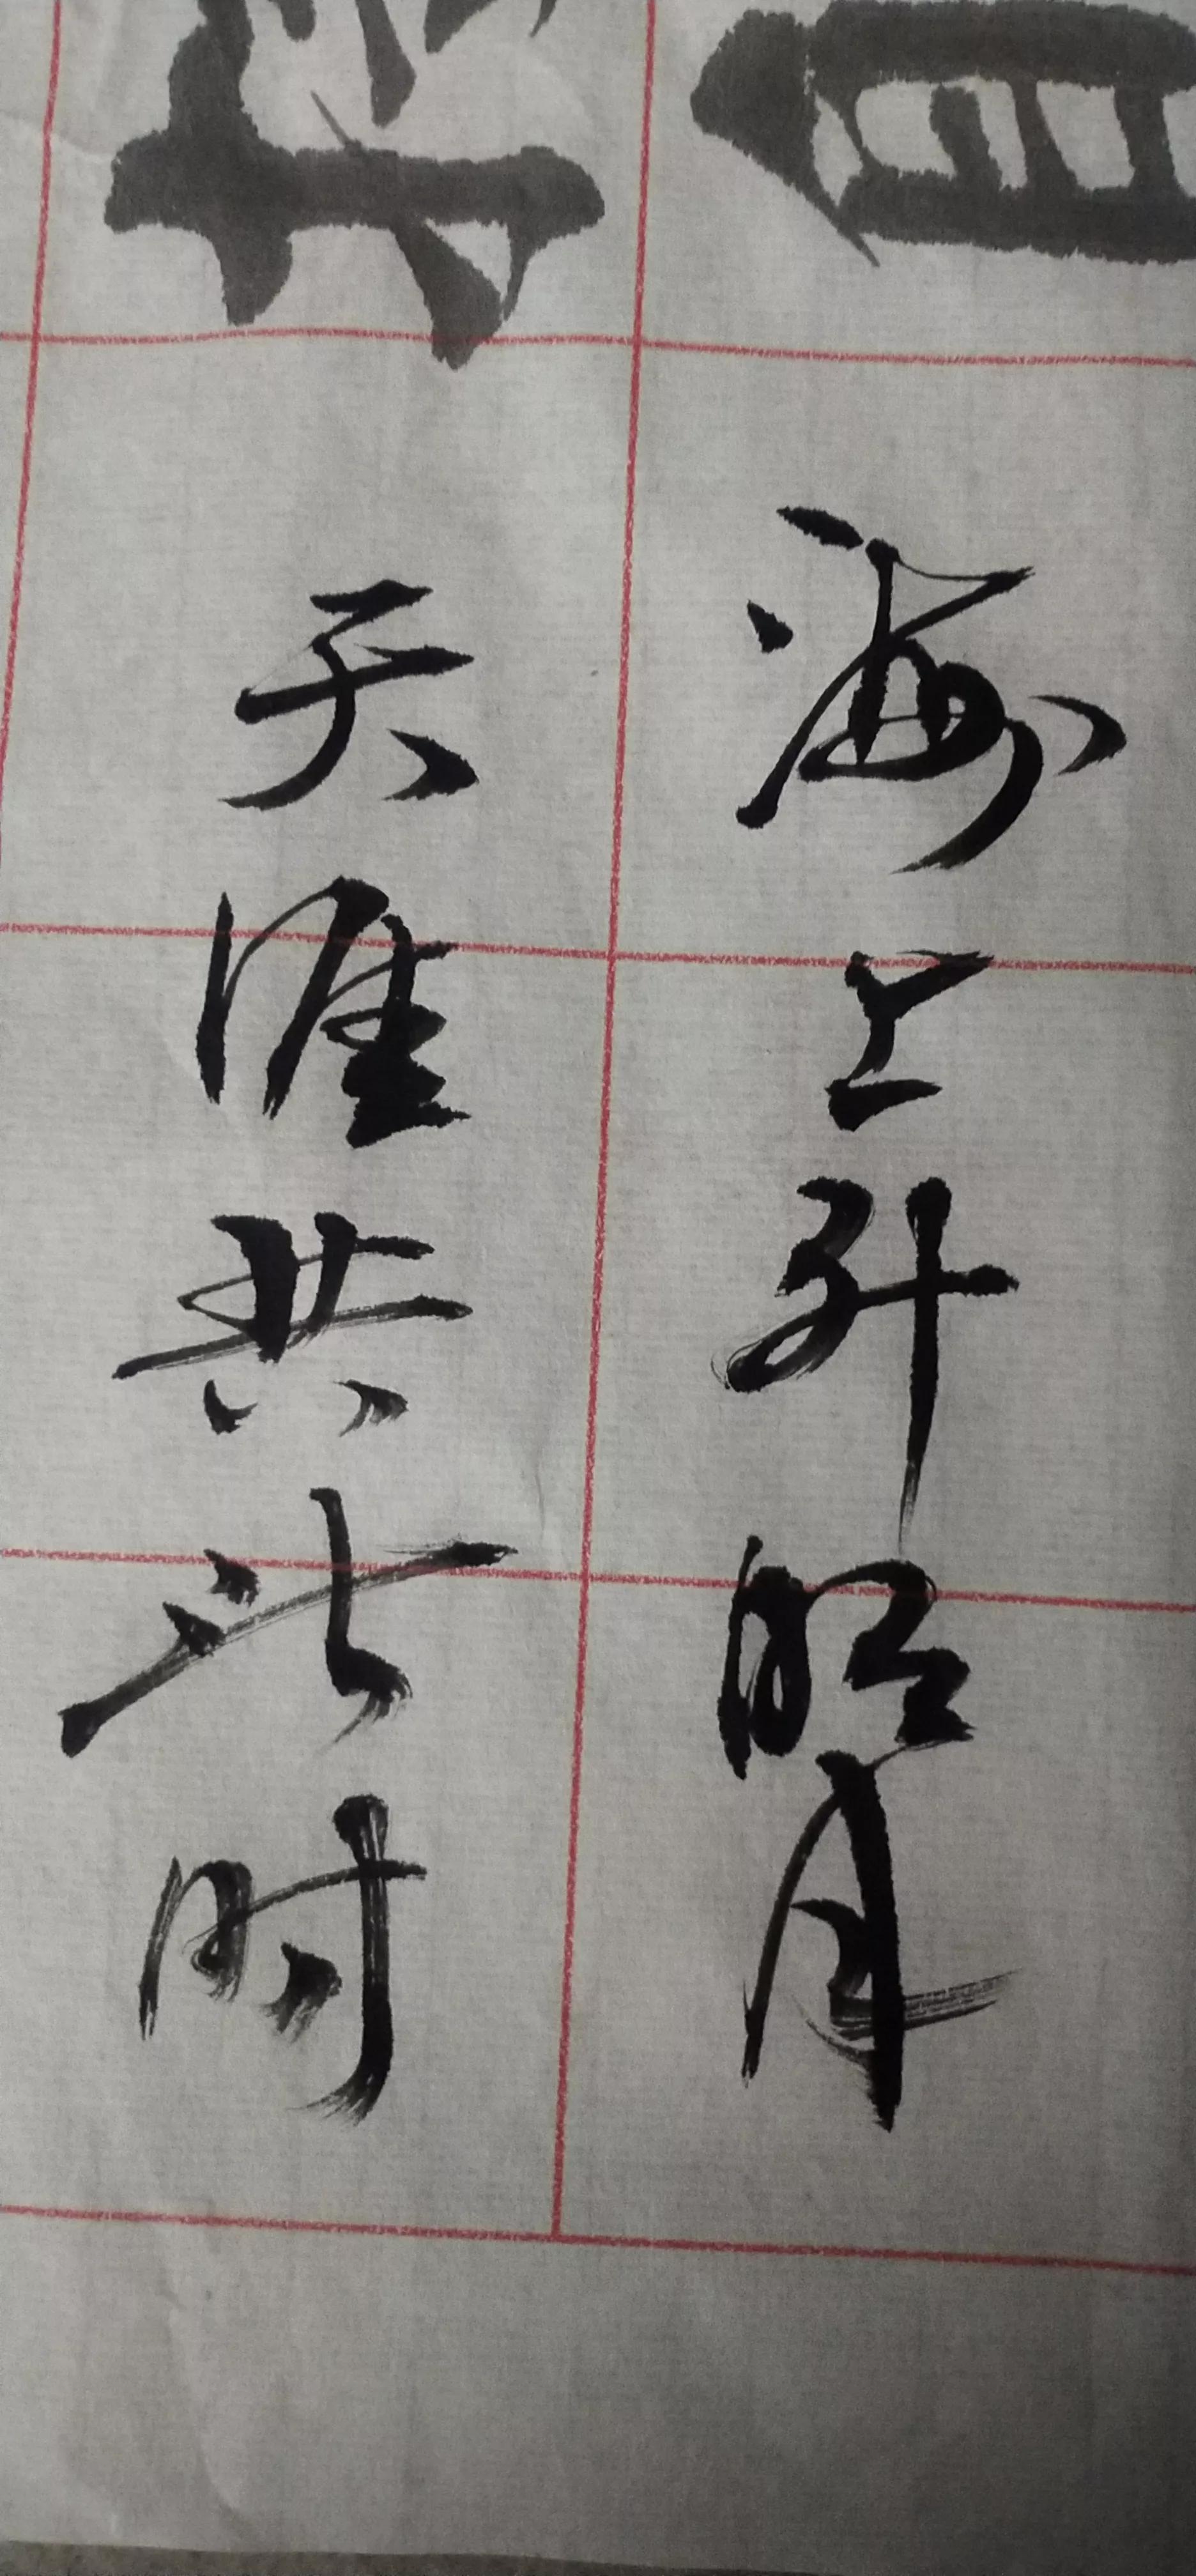 海上升明月
天涯共此时